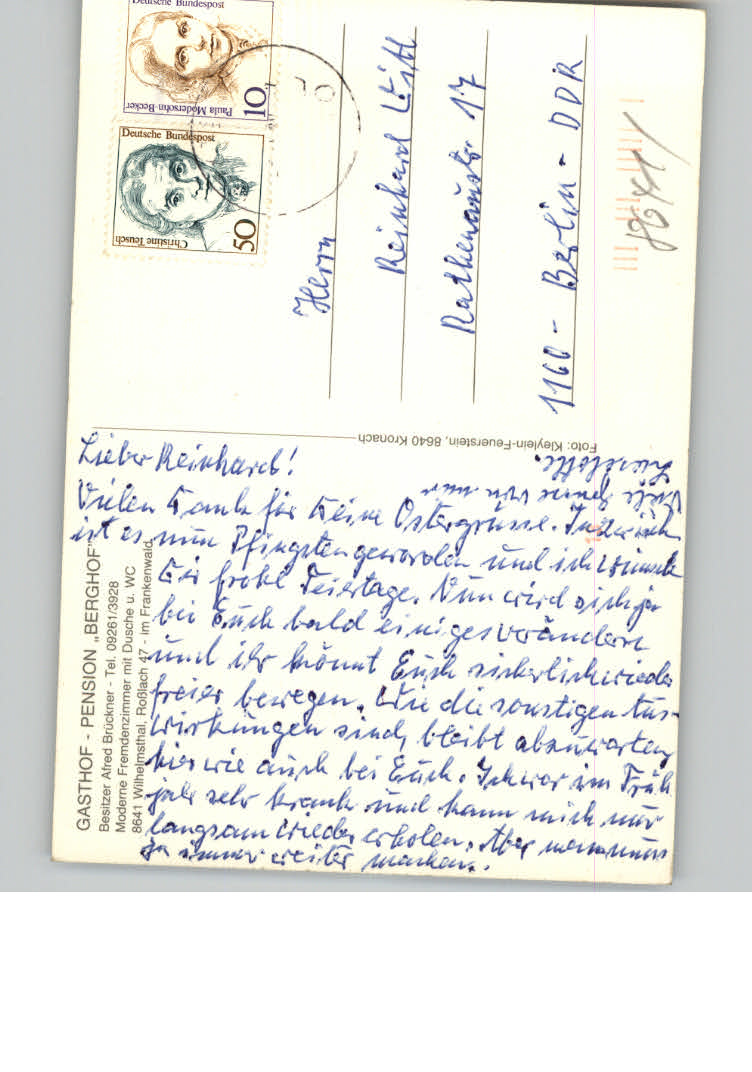 Lieber Reinhard!
Vielen Dank für Deine Ostergrüsse. Inzwisch
ist es nun Pfingsten geworden und ich wünsche
Dir frohe Feiertage. Nun wird sich ja
bei Euch bald einiges verändern
und ihr könnt Euch sicherlich wieder
freier bewegen. Wie die sonstigen Aus-
wirkungen sind, bleibt abzuwarten,
hier wie auch bei Euch. Ich war im Früh
jahr sehr krank und kann mich nur
langsam wieder erholen. Aber man muss
ja immer weiter machen.
Viele von nur
Lieselotte.
GASTHOF - PENSION „BERGHOF"
Besitzer Alfred Brückner - Tel. 09261/3928
Moderne Fremdenzimmer mit Dusche u. WC
8641 Wilhelmsthal, Roßlach 47 - im Frankenwald
Foto: Kleylein-Feuerstein, 8640 Kronach
Deutsche Bundespost
Paula Modersohn-Becker
10
Deutsche Bundespost
Christine Teusch
50
Herrn
Reinhard
Rathenaustr. 17
1160 - Berlin - DDR